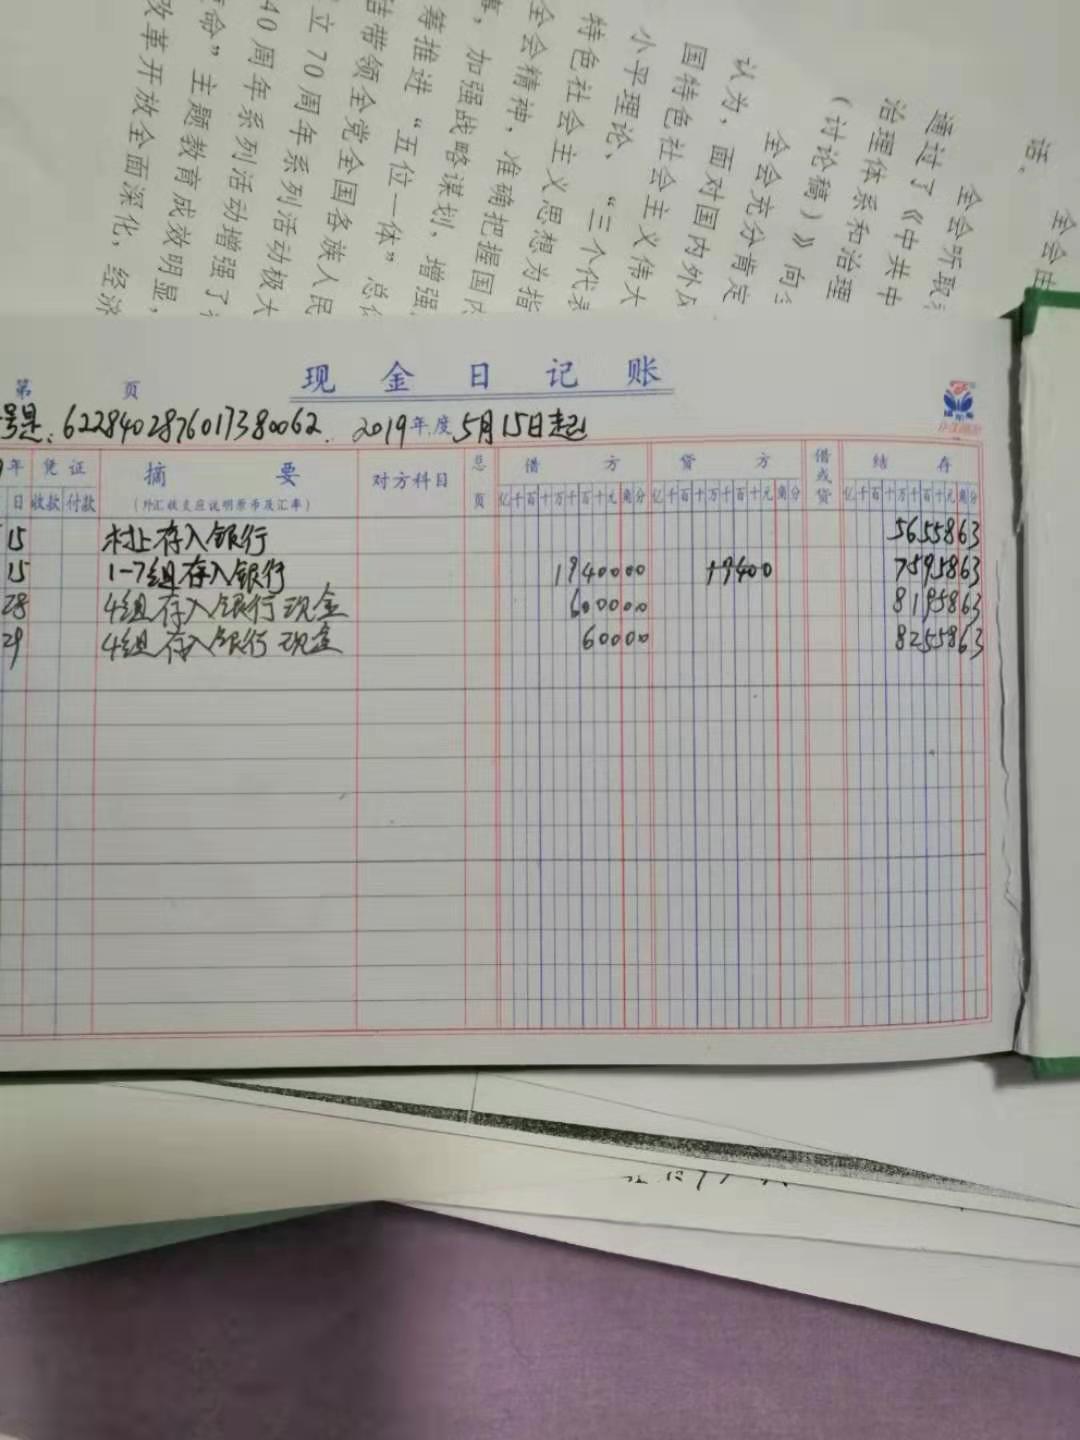 话。
全会由
全会听取
通过了《中共中
治理体系和治理
(讨论稿)》向全
全会充分肯定
认为，面对国内外
国特色社会主义伟大
小平理论、“三个代表
特色社会主义思想为指
全会精神，准确把握国内
加强战略谋划，增强
筹推进“五位一体”总体
结带领全党全国各族人民
立70周年系列活动极大
40周年系列活动增强了
命”主题教育成效明显，
改革开放全面深化，经济
现金日记账
第 页
号是：6228402876017380062. 2019年度5月15日起
年 凭证 摘要 对方科目 总页 借方 贷方 借或贷 结存
日 收款 付款 (外汇收支应说明原币及汇率) 亿千百十万千百十元角分 亿千百十万千百十元角分 亿千百十万千百十元角分
15 村上存入银行 5655863
15 1-7组存入银行 1940000 19400 7595863
28 4组存入银行现金 600000 8195863
29 4组存入银行现金 60000 8255863